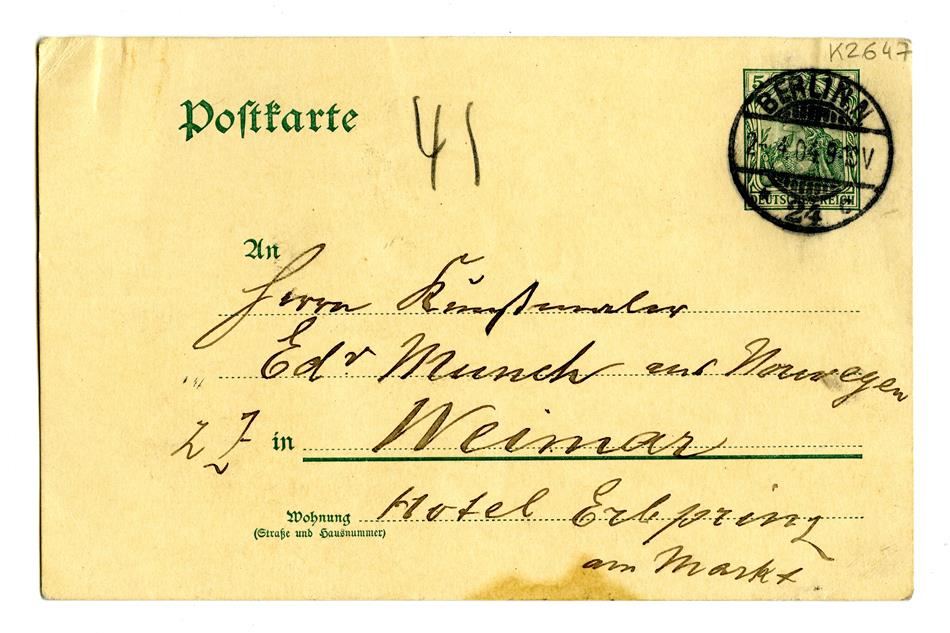 K2647
5
BERLIN.N
2.4.04.9-10V
24
DEUTSCHES REICH
Poſtkarte
41
An
Herrn Kunſtmaler
Edv Munch aus Norwegen
in Weimar
Wohnung Hotel Erbprinz
(Straße und Hausnummer)
am Markt